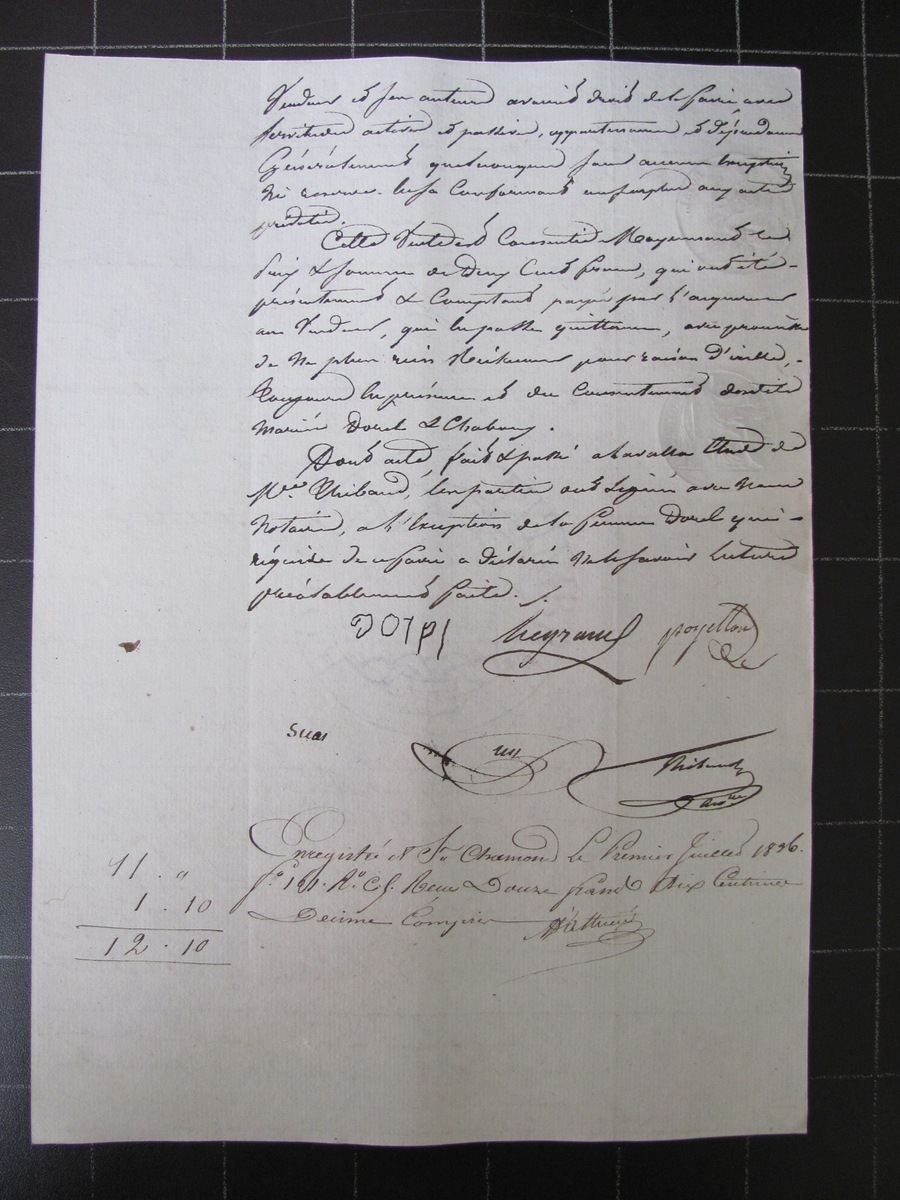 Vendeur et son auteur avaient droit de le faire, avec
servitudes actives et passives, appartenances et dépendances
Généralement quelconques sans aucune exception
ni réserve. En se conformant au surplus aux actes
prédatés.
Cette Vente est Consentie Moyennant le
prix & somme de Deux Cents francs, qui ont été
présentement & Comptant payés par l'acquéreur
au Vendeur, qui en passe quittance, avec promesse
de ne plus rien Réclamer pour raison d'icelle,
Toujours en présence et du Consentement desdits
Mariés Dorel &
Dont acte, fait & passé à Lavalla Etude de
Me. Thibaud, les parties ont Signé avec Nous
Notaire, à l'Exception de la femme Dorel qui
requise de ce faire a déclaré ne le savoir Lecture
préalablement faite.
poyetton
Thibaud
Enregistré à St. Chamond Le Premier Juillet 1836.
fo. 191. Ro. C. Reçu Douze francs dix Centimes
Décime Compris
11 . "
1 . 10
12 . 10